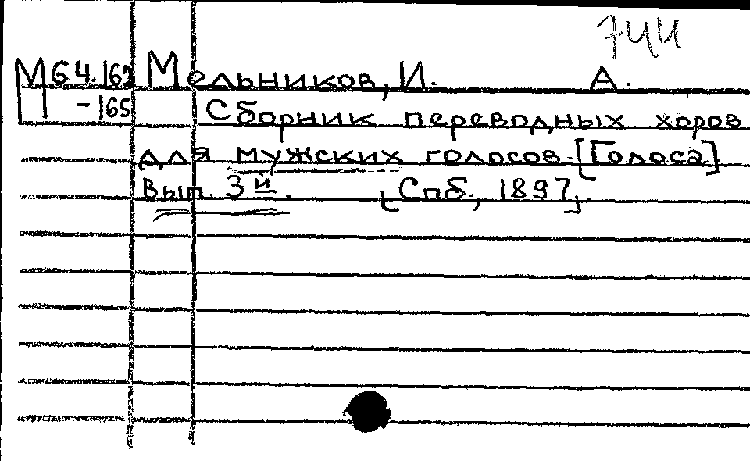 744
М 64.162 Мельников, И. А.
-165 Сборник переводных хоров
для мужских голосов. [Голоса]
Вып. 3й. [Спб., 1897].